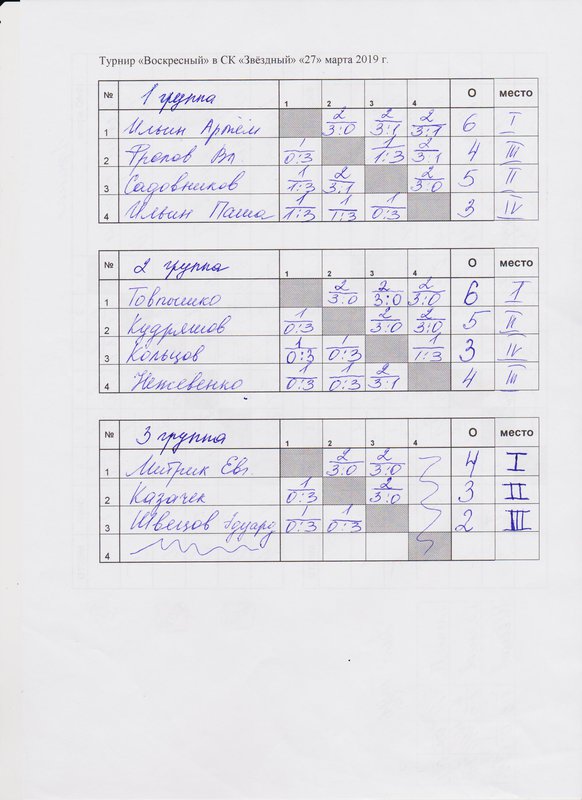 Турнир «Воскресный» в СК «Звёздный» «27» марта 2019 г.
№ 1 группа 1 2 3 4 О место
1 Ильин Артём 2/3:0 2/3:1 2/3:1 6 I
2 Фролов Вл. 1/0:3 1/1:3 2/3:1 4 III
3 Садовников 1/1:3 2/3:1 2/3:0 5 II
4 Ильин Паша 1/1:3 1/1:3 1/0:3 3 IV
№ 2 группа 1 2 3 4 О место
1 2/3:0 2/3:0 2/3:0 6 I
2 Кудряшов 1/0:3 2/3:0 2/3:0 5 II
3 Кольцов 1/0:3 1/0:3 1/1:3 3 IV
4 Нежевенко 1/0:3 1/0:3 2/3:1 4 III
№ 3 группа 1 2 3 4 О место
1 Митрик Евг. 2/3:0 2/3:0 4 I
2 Казачек 1/0:3 2/3:0 3 II
3 Швецов Эдуард 1/0:3 1/0:3 2 III
4